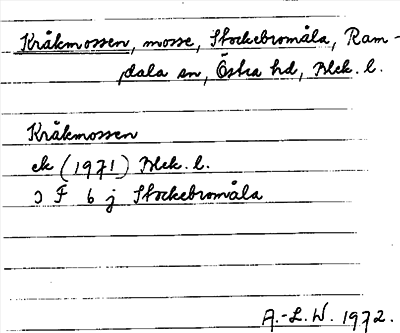 Kråkmossen, mosse, Stockebromåla, Ram-
dala sn, Östra hd, Blek. l.
Kråkmossen
ek (1971) Blek. l.
3 F 6 j Stockebromåla
A.-L. W. 1972.